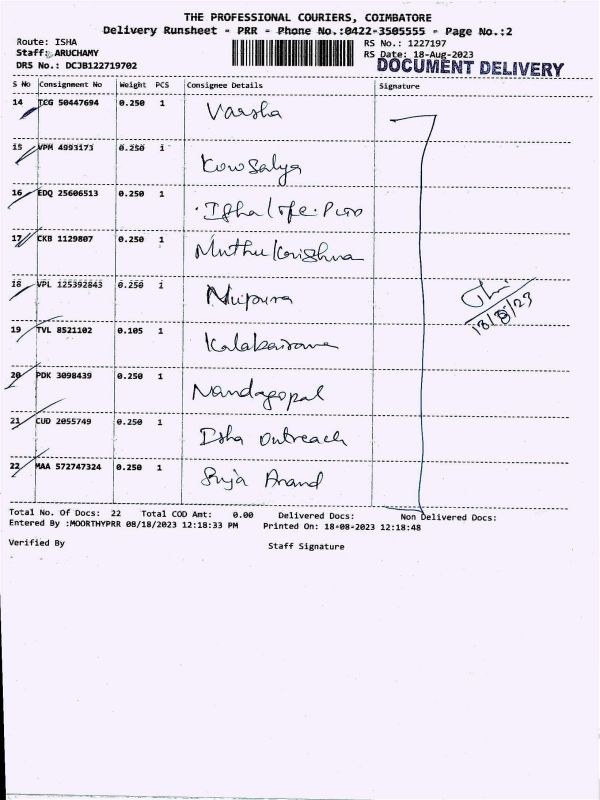 THE PROFESSIONAL COURIERS, COIMBATORE
Delivery Runsheet - PRR - Phone No.:0422-3505555 - Page No.:2
Route: ISHA RS No.: 1227197
Staff: ARUCHAMY RS Date: 18-Aug-2023
DRS No.: DCJB122719702 DOCUMENT DELIVERY
S No Consignment No Weight PCS Consignee Details Signature
14 TCG 50447694 0.250 1 Varsha
15 VPM 4993173 0.250 1 Kowsalya
16 EDQ 25606513 0.250 1 Isha life Pvo
17 CKB 1129807 0.250 1 Muthu Krishna
18 VPL 125392843 0.250 1 Nupura
18/8/23
19 TVL 8521102 0.105 1
20 PDK 3098439 0.250 1 Nandagopal
21 CUD 2055749 0.250 1 Isha Outreach
22 MAA 572747324 0.250 1 Suja Anand
Total No. Of Docs: 22 Total COD Amt: 0.00 Delivered Docs: Non Delivered Docs:
Entered By :MOORTHYPRR 08/18/2023 12:18:33 PM Printed On: 18-08-2023 12:18:48
Verified By Staff Signature